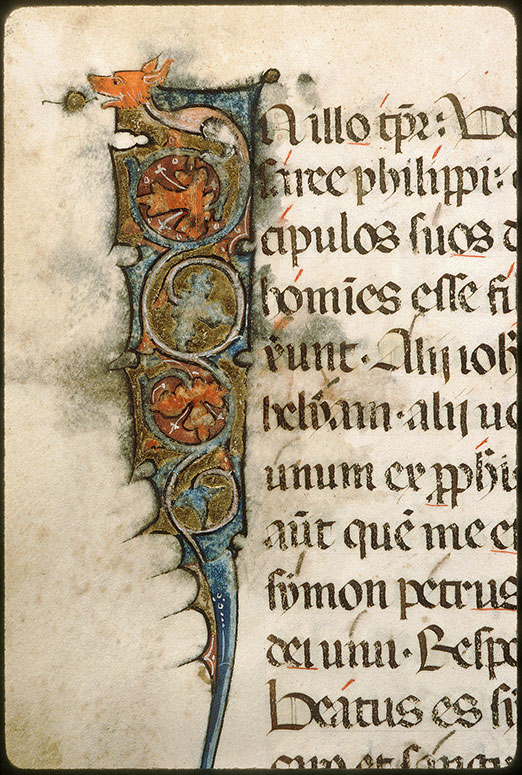 N illo tp̄r : Ve
saree philippi :
cipulos suos d
homīes esse fi
erunt . Alij ioh
helyam . alij ue
unum ex ꝓphi
aūt quē me e
symon petrus
dei uiui . Respo
Beatus es si
caro et sangu